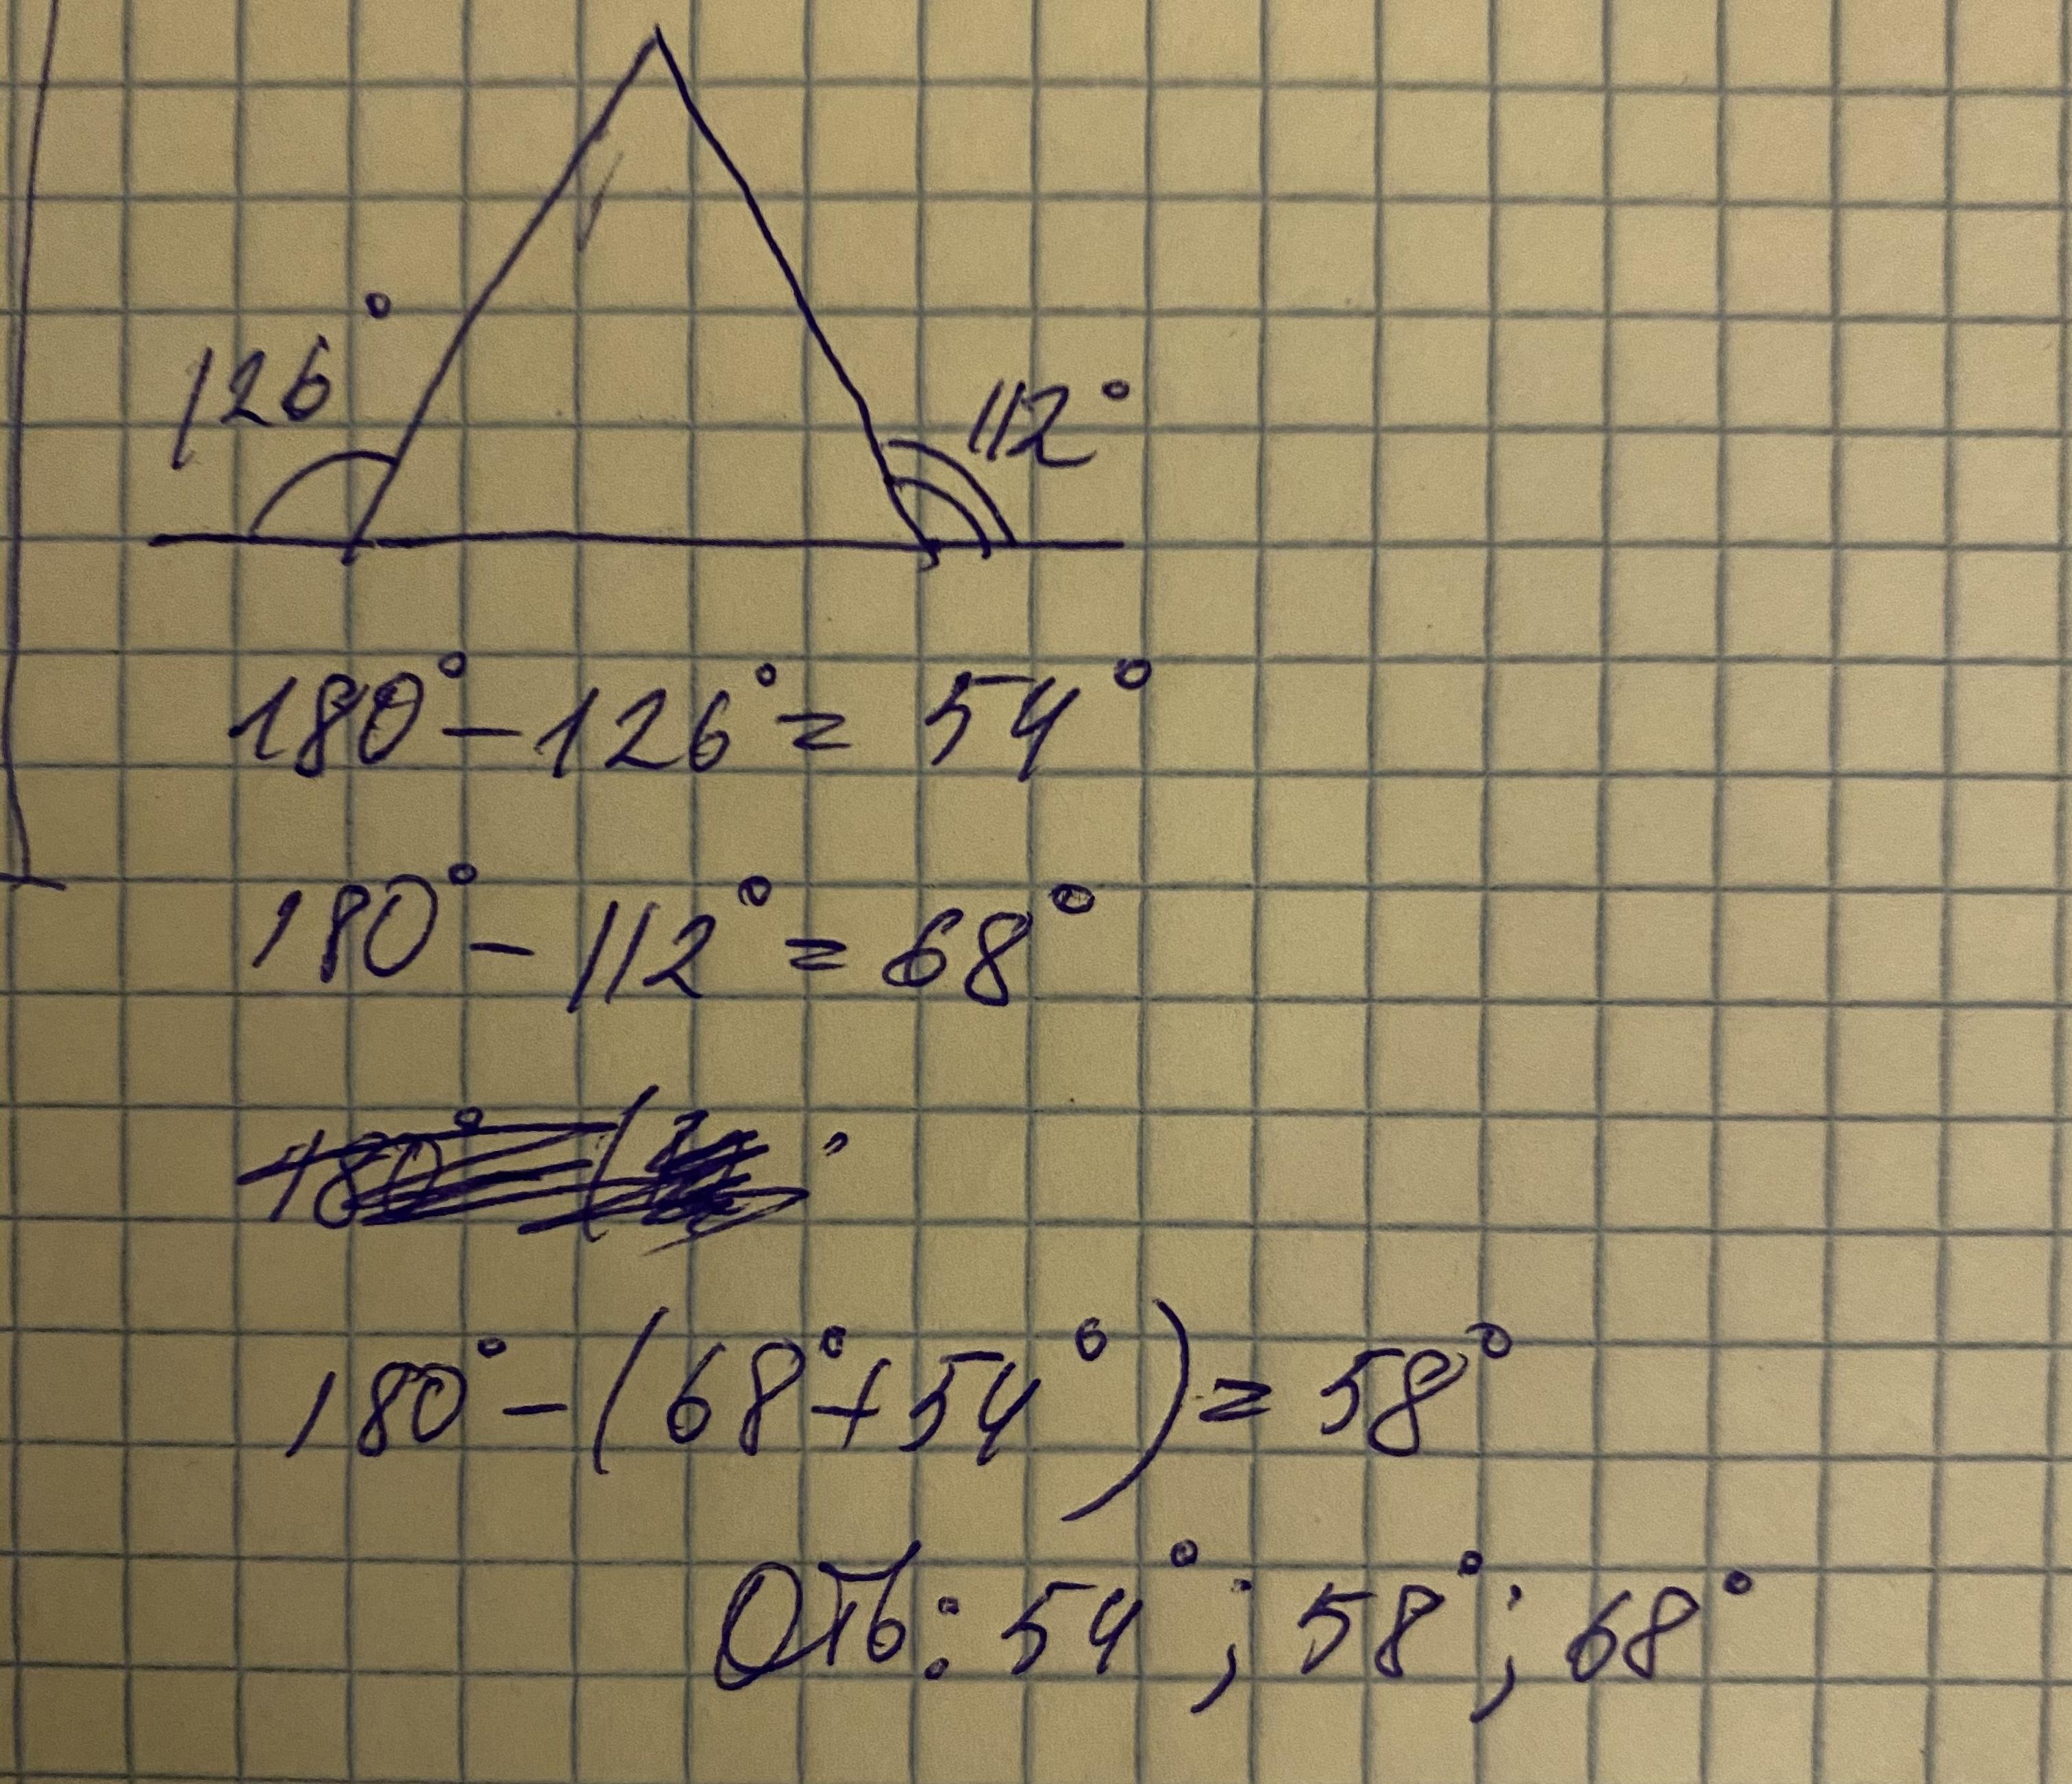 126°
112°
180° - 126° = 54°
180° - 112° = 68°
180° - (68° + 54°) = 58°
Отв: 54°; 58°; 68°